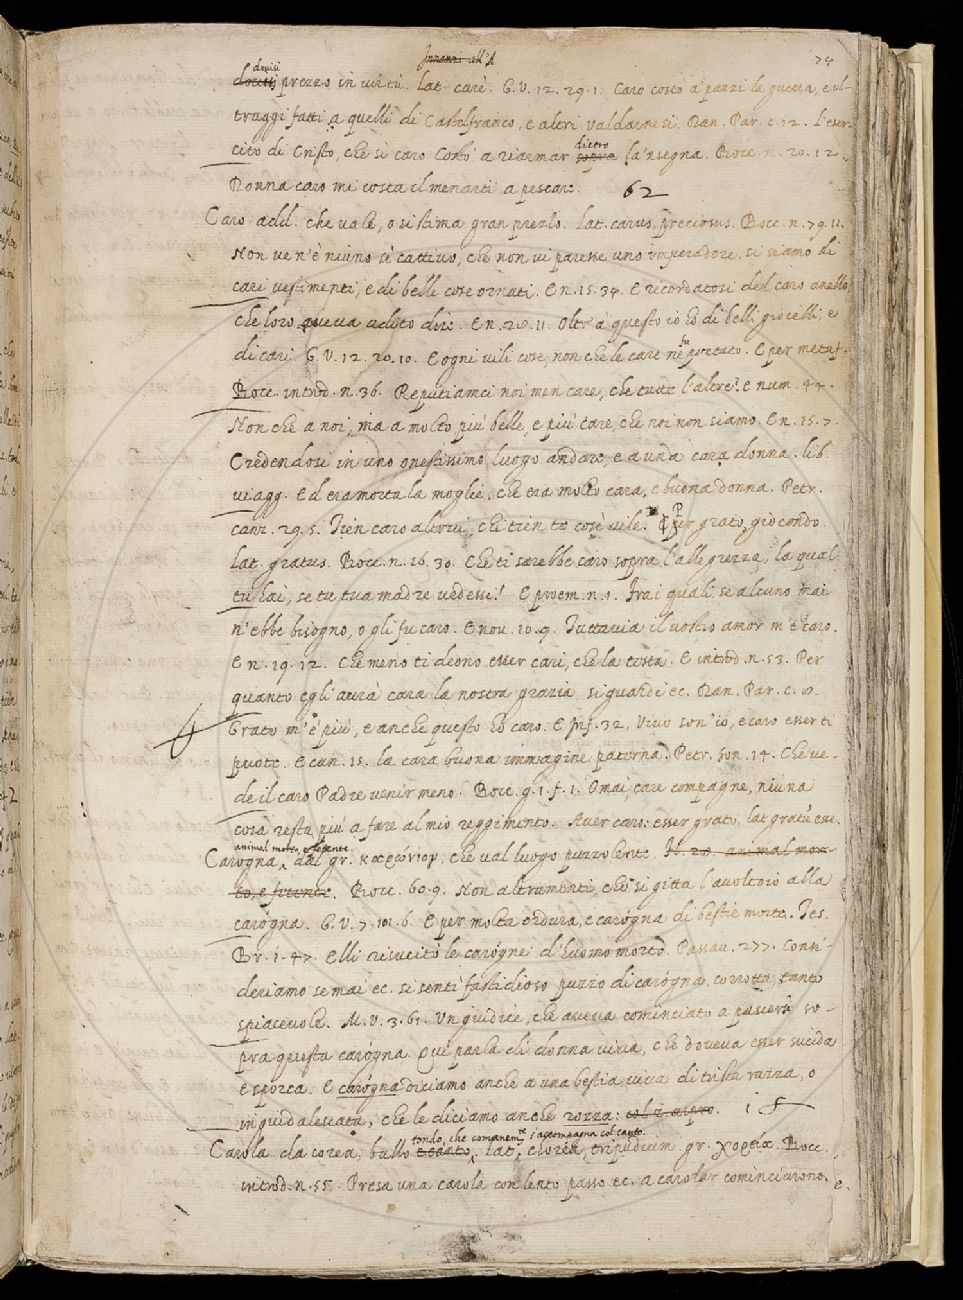 74
Innanzi all'A
dovisi
dovitti prezzo in virtù. lat. carè. G. V. 12. 29. 1. Caro costò a' pazzi la guerra, e ul-
traggi fatti a quelli di Castelfranco, e altri Valdarnesi. Dan. Par. c. 12. L'eser-
dietro
cito di Cristo, che sì caro Costò a riarmar sopra la 'nsegna. Bocc. n. 20. 12.
Donna caro mi costa il menarti a pescare. 62
Caro add. che vale, o si stima gran prezzo. lat. carus, preciosus. Bocc. n. 79. 11.
Non ve n'è niuno sè cattivo, che non vi paresse uno imperadore. si siamo di
cari vestimenti, e di belle cose ornati. E n. 15. 34. E ricordatosi del caro anello
che loro aveva udito dire. E n. 28. 11. Oltr' a questo io ho di belli gioielli, e
fu
di cari. G. V. 12. 20. 10. E ogni vili cose, non che le care ne portato. E per metaf.
Bocc. introd. n. 36. Reputiamci noi men care, che tutte l'altre? e num. 44.
Non che a noi, ma a molto più belle, e più care, che noi non siamo. E n. 15. 7.
Credendosi in uno onestissimo luogo andare, e a una cara donna. lib.
viagg. Ed era morta la moglie, che era molto cara, e buona donna. Petr.
canz. 29. 5. Tien caro altrui, che tien te così vile. Per grato, giocondo.
lat. gratus. Bocc. n. 16. 30. Che ti sarebbe caro sopra l'allegrezza, la qual
tu hai, se tu tua madre vedessi! E proem. n. 1. Fra i quali se alcuno mai
n'ebbe bisogno, o gli fu caro. E nov. 10. 9. Tuttavia il vostro amor m'è caro.
E n. 19. 12. Che meno ti deono esser cari, che la testa. E introd. n. 53. Per
quanto egli avrà cara la nostra grazia, si guardi ec. Dan. Par. c.
Grato m'è più, e anche questo ho caro. E Inf. 32. Vivo son'io, e caro esser ti
puote. E can. 15. la cara buona immagine paterna. Petr. son. 14. Che ve-
de il caro Padre venir meno. Bocc. g. 1. f. 1. Omai, care compagne, niuna
cosa resta più a fare al mio reggimento. Aver caro: esser grato, lat. gratū esse.
animal morto, e fetente.
Carogna, dal gr. che val luogo puzzolente. animal mor-
to, e fetente. Bocc. 60. 9. Non altramenti, che si gitta l'avoltoio alla
carogna. G. V. 7. 101. 6. E per molta ordura, e carogna di bestie morte. Tes.
Br. 1. 47. Elli risuscitò le carogne d'huomo morto. Passav. 277. Consi-
deriamo se mai ec. si sentì fastidioso puzzo di carogna, corrotta, tanto
spiacevole. M. V. 3. 61. Un giudice, che aveva cominciato a pascere so-
pra questa carogna. Qui parla di donna viva, che doveva esser sucida
e sporca. E carogna diciamo anche a una bestia viva di trista razza, o
inguidalescata, che le diciamo anche rozza:
tondo, che comunemte s'accompagna col canto.
Carola da corea, ballo e canto, lat. chorea, tripudium gr. χορεία. Bocc.
introd. n. 55. Presa una carola con lento passo ec. a carolar cominciarono.